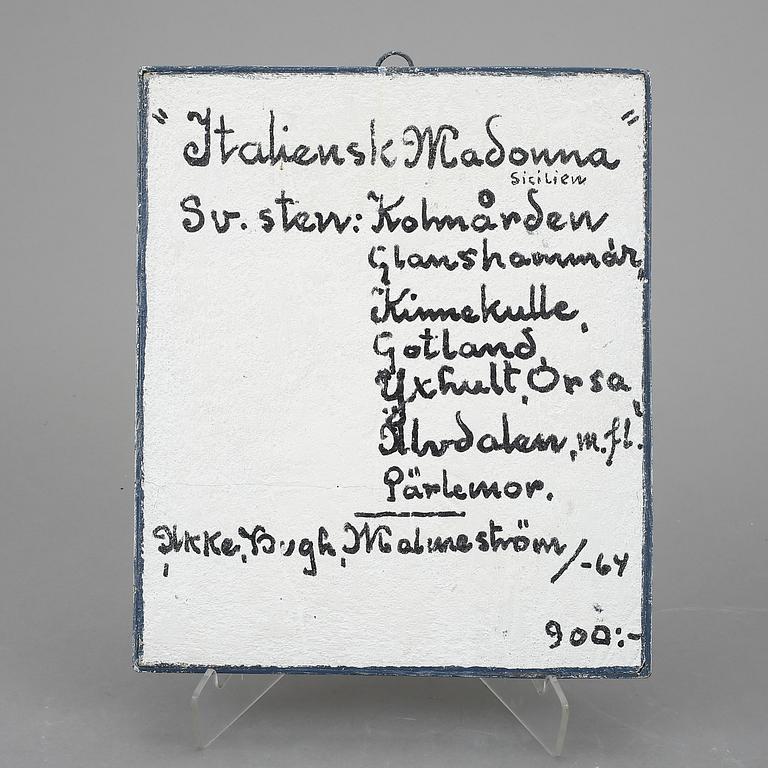 "Italiensk Madonna"
Sicilien
Sv. sten: Kolmården
Glanshammar,
Kinnekulle,
Gotland,
Yxhult, Orsa,
Älvdalen, m.fl.
Pärlemor.
Åkke, Hugh, Malmeström/-64
900:-